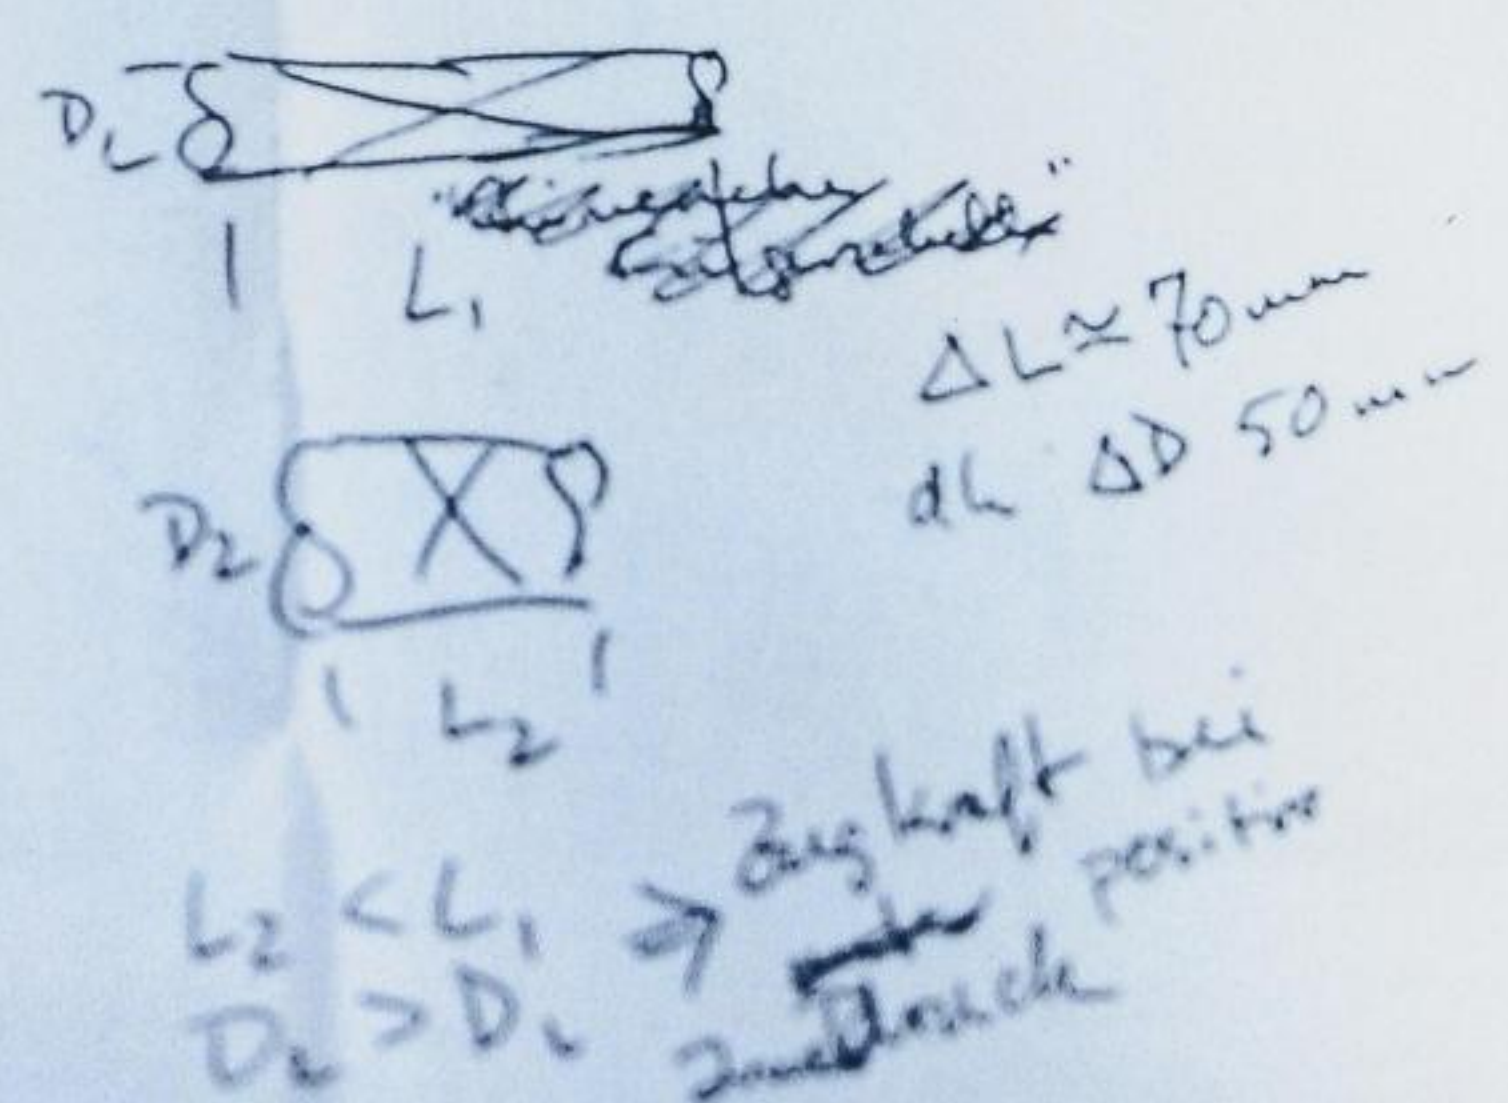 D₁
L₁
ΔL ≃ 70 mm
dh ΔD 50 mm
D₂
L₂
L₂ < L₁ ⇒ Zugkraft bei
D₂ > D₁ positiv
Innendruck